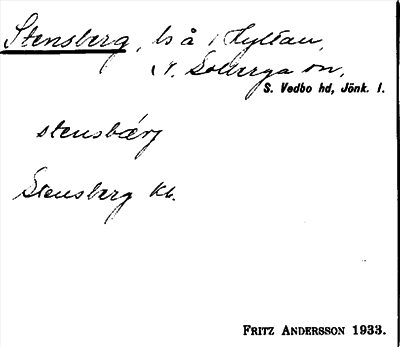 Stensberg, ls å Hyltan,
N. Solberga sn,
S. Vedbo hd, Jönk. l.
stensbærj
Stensberg Kb.
FRITZ ANDERSSON 1933.